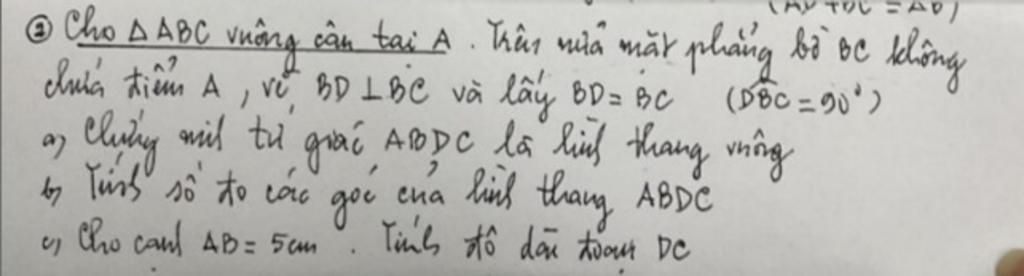 (AD + DC = AB)
② Cho △ABC vuông cân tại A. Trên nửa mặt phẳng bờ BC không
chứa điểm A, vẽ BD ⊥ BC và lấy BD = BC (DBC = 90°)
a) Chứng minh tứ giác ABDC là hình thang vuông
b) Tính số đo các góc của hình thang ABDC
c) Cho cạnh AB = 5cm. Tính độ dài đoạn DC